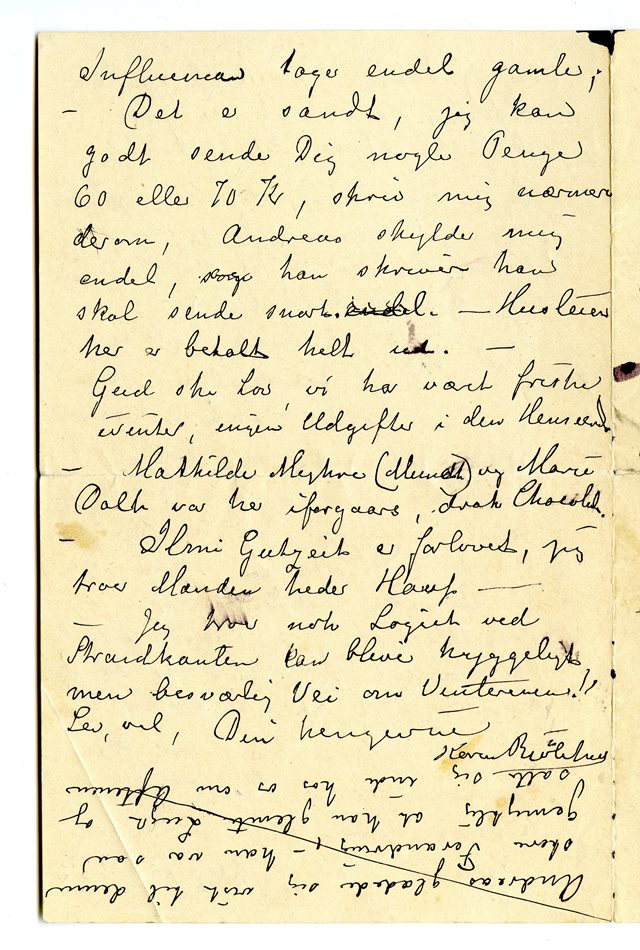 Influenzaen tager endel gamle;
– Det er sandt, jeg kan
godt sende Dig nogle Penge
60 eller 70 Kr, skriv mig nærmere
derom, Andreas skylder mig
endel, han skriver han
skal sende snart. endel. – Huslejen
her er betalt helt ud. –
Gud ske Lov, vi har vært friske
ivinter, ingen Udgifter i den Henseende
– Mathilde (Mundt) og Marie
Dall var her iforgaars, drak Chocolade.
– Ilmi Gutzeit er forlovet, jeg
troer Manden heder Haup —
– Jeg troer nok Logiet ved
Strandkanten kan blive hyggeligt
men besværlig Vei om Vinteren!!
Lev, vel, Din hengivne
Karen
Andreas glædede sig vist til denne
store Forandring, – han var saa
gemytlig at han glemte Luga og
satte sig inde hos os om Aftenen